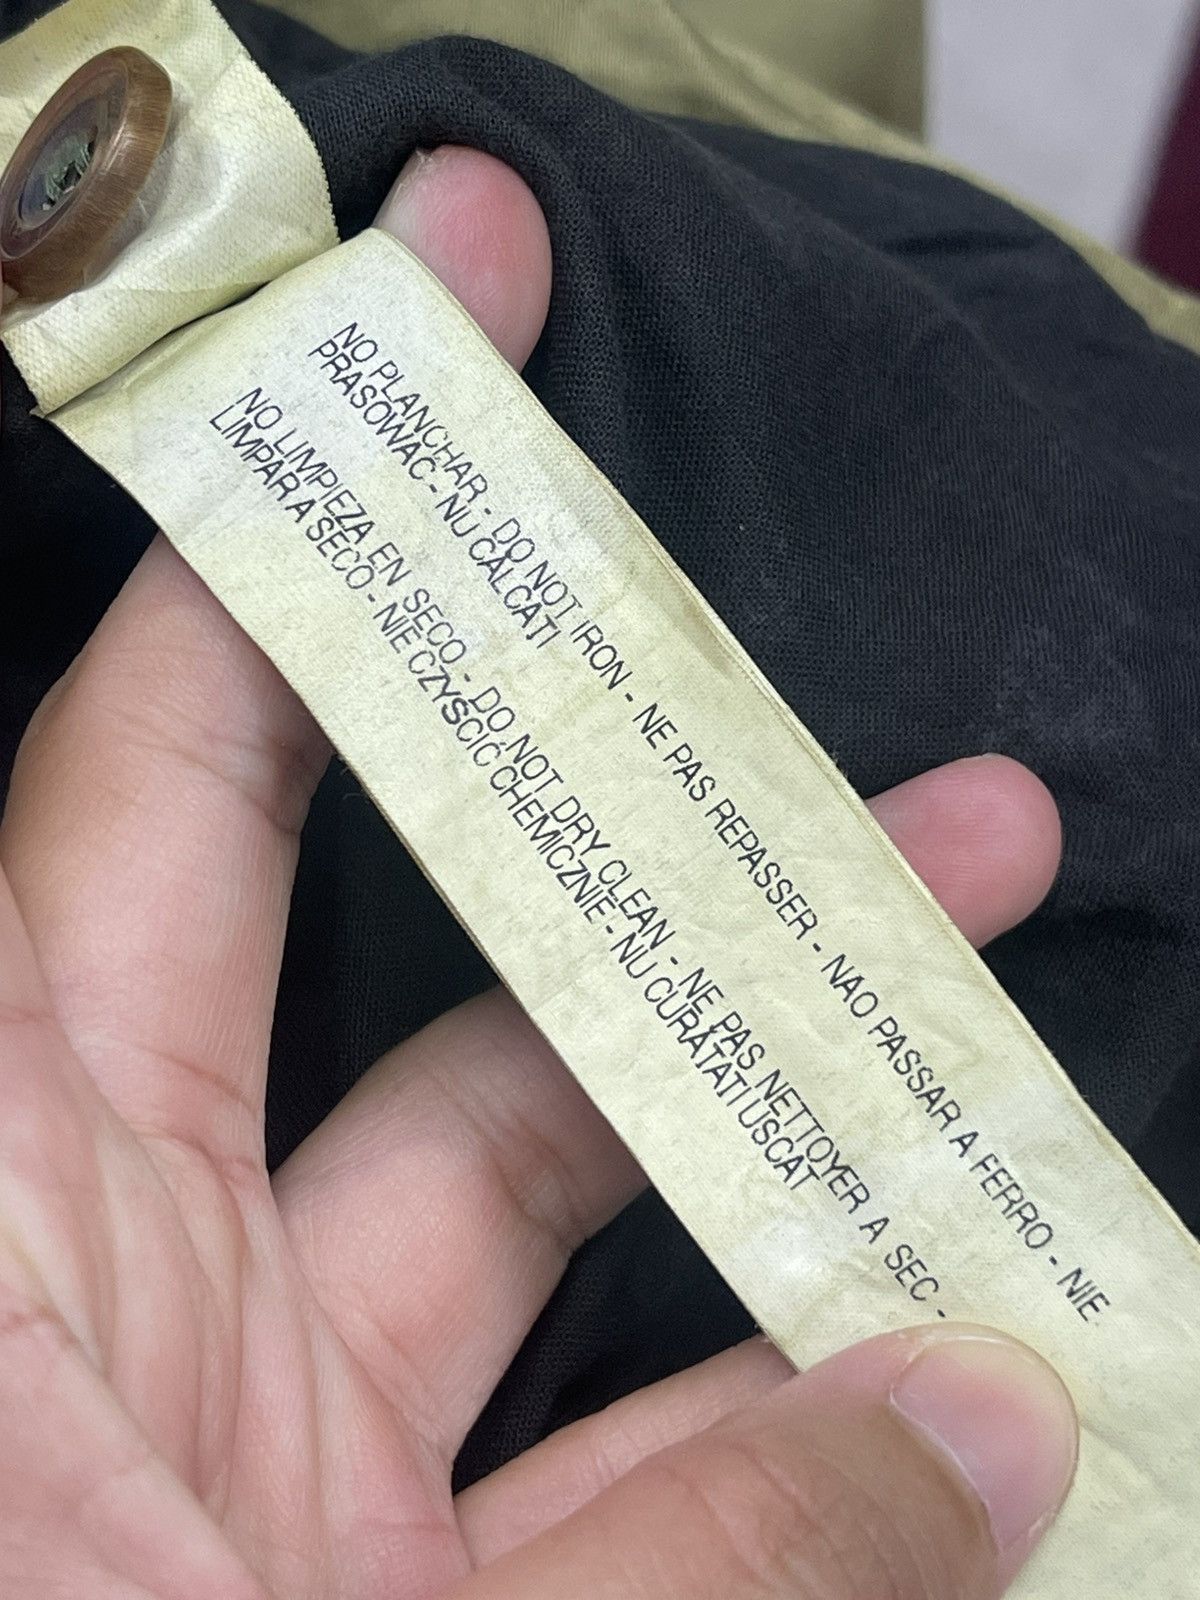 NO PLANCHAR - DO NOT IRON - NE PAS REPASSER - NAO PASSAR A FERRO - NIE
PRASOWAĆ - NU CALCATI
NO LIMPIEZA EN SECO - DO NOT DRY CLEAN - NE PAS NETTOYER A SEC -
LIMPAR A SECO - NIE CZYŚCIĆ CHEMICZNIE - NU CURATATI USCAT